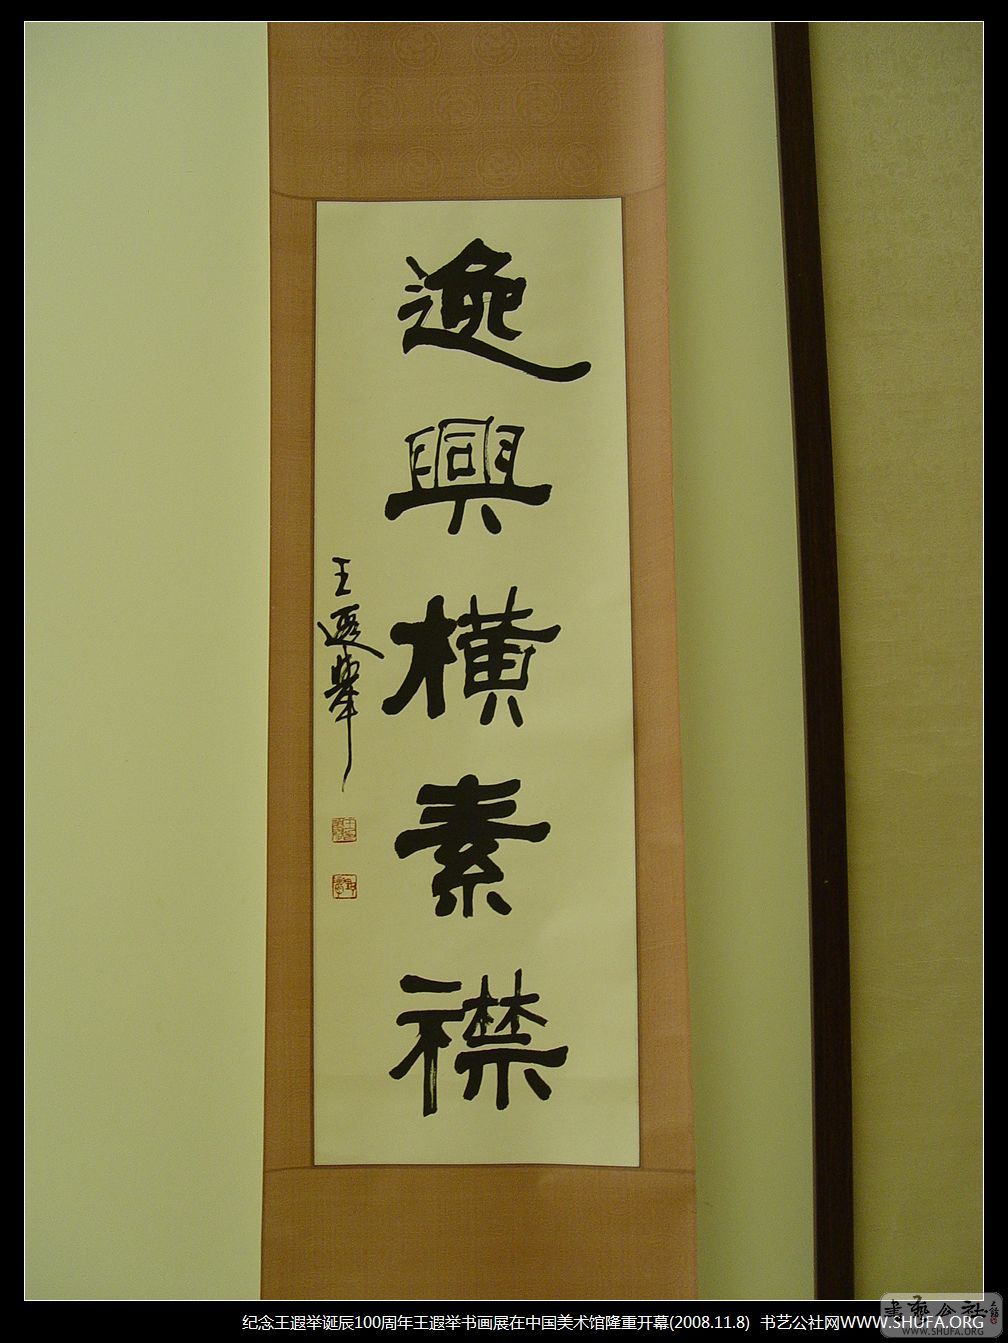 逸興橫素襟
王遐舉
纪念王遐举诞辰100周年王遐举书画展在中国美术馆隆重开幕(2008.11.8) 书艺公社网WWW.SHUFA.ORG
書藝公社
www.SHUFA.ORG